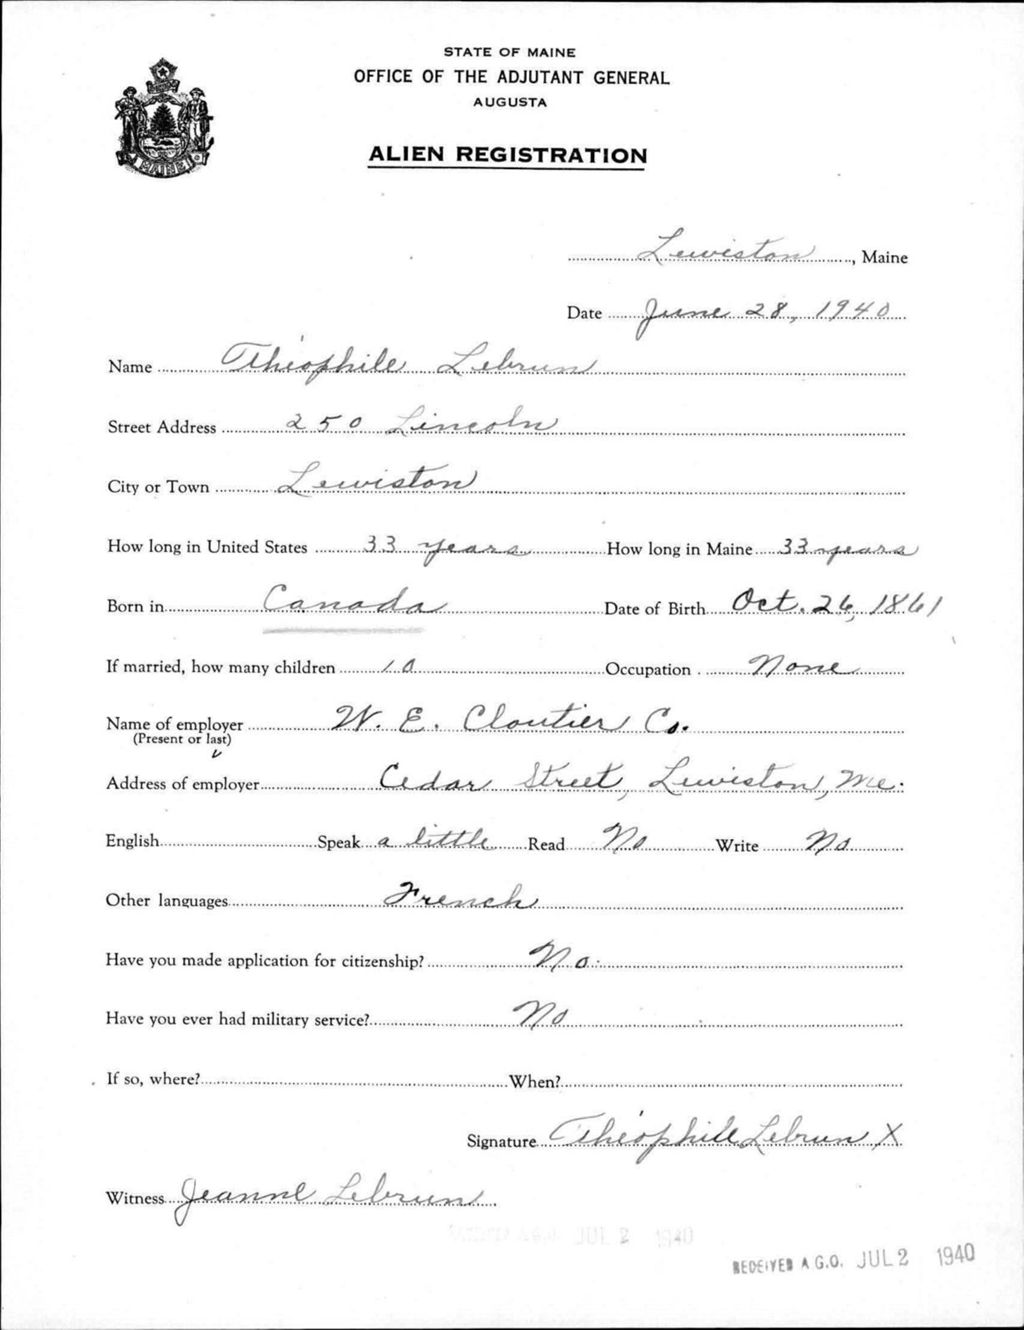 STATE OF MAINE
OFFICE OF THE ADJUTANT GENERAL
AUGUSTA
ALIEN REGISTRATION
MAINE
Lewiston, Maine
Date June 28, 1940
Name Théophile Lebrun
Street Address 250 Lincoln
City or Town Lewiston
How long in United States 33 years How long in Maine 33 years
Born in Canada Date of Birth Oct. 26, 1861
If married, how many children 10 Occupation None
Name of employer W. E. Cloutier Co.
(Present or last)
Address of employer Cedar Street, Lewiston, Me.
English Speak a little Read No Write No
Other languages French
Have you made application for citizenship? No.
Have you ever had military service? No
If so, where? When?
Signature Théophile Lebrun X
Witness Jeanne Lebrun
RECEIVED A.G.O. JUL 2 1940
RECEIVED A.G.O. JUL 2 1940